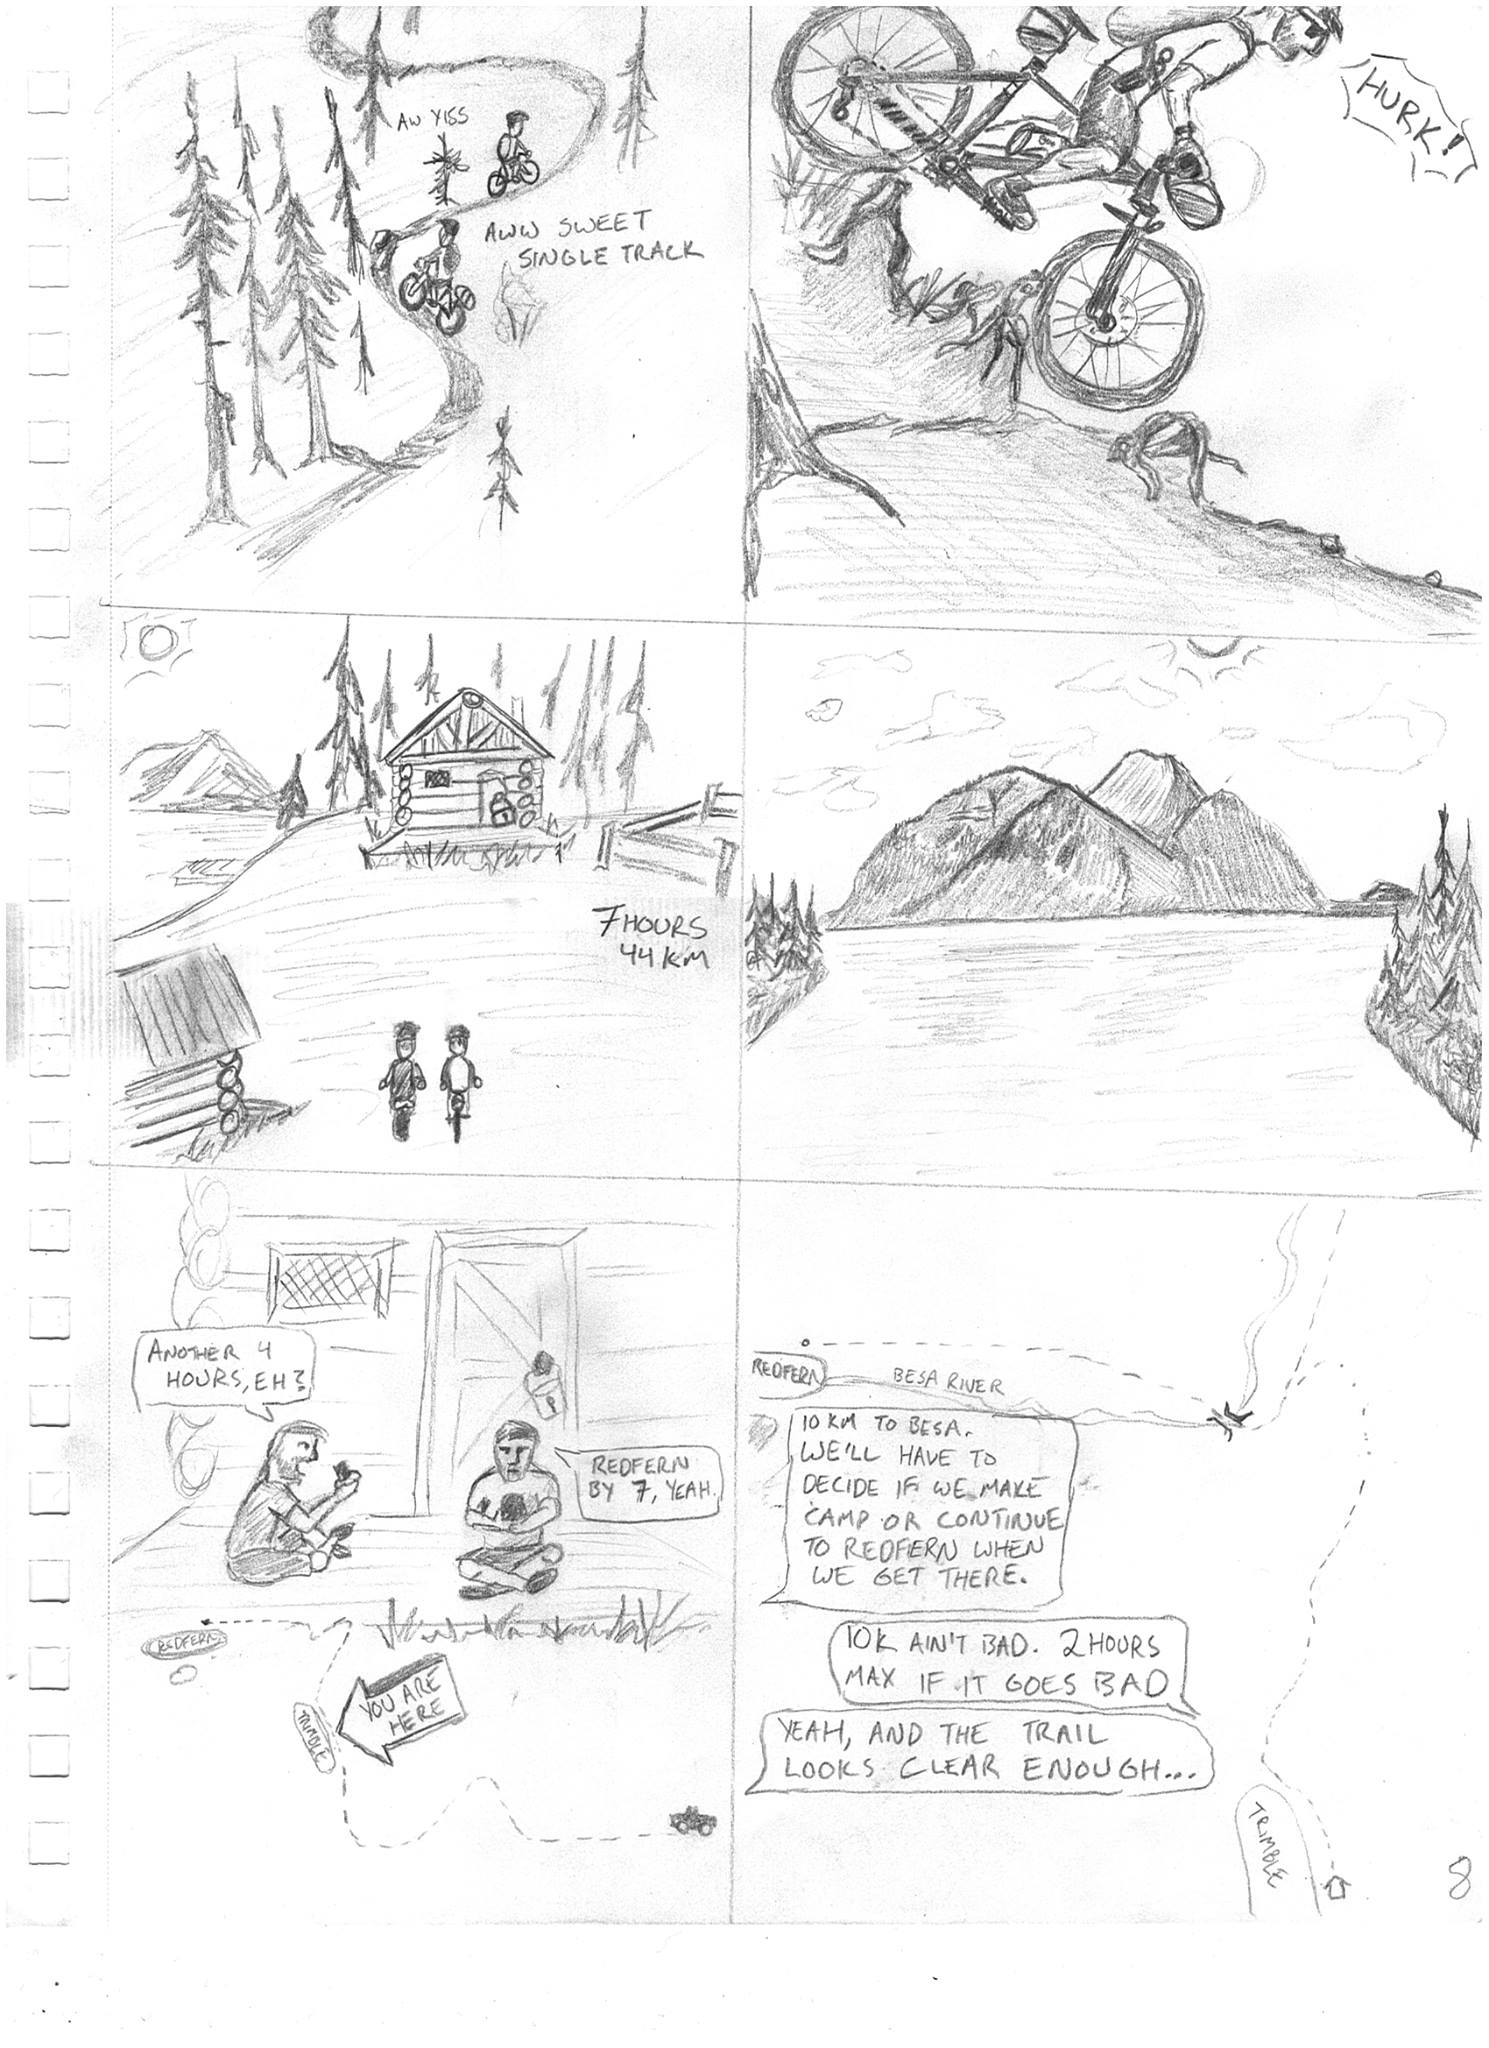 AW YISS
AWW SWEET
SINGLE TRACK
HURK!
7 HOURS
44 KM
ANOTHER 4
HOURS, EH?
REDFERN
BY 7, YEAH.
REDFERN
YOU ARE
HERE
TRIMBLE
REDFERN
BESA RIVER
10 KM TO BESA.
WE'LL HAVE TO
DECIDE IF WE MAKE
CAMP OR CONTINUE
TO REDFERN WHEN
WE GET THERE.
10K AIN'T BAD. 2 HOURS
MAX IF IT GOES BAD
YEAH, AND THE TRAIL
LOOKS CLEAR ENOUGH...
TRIMBLE
8